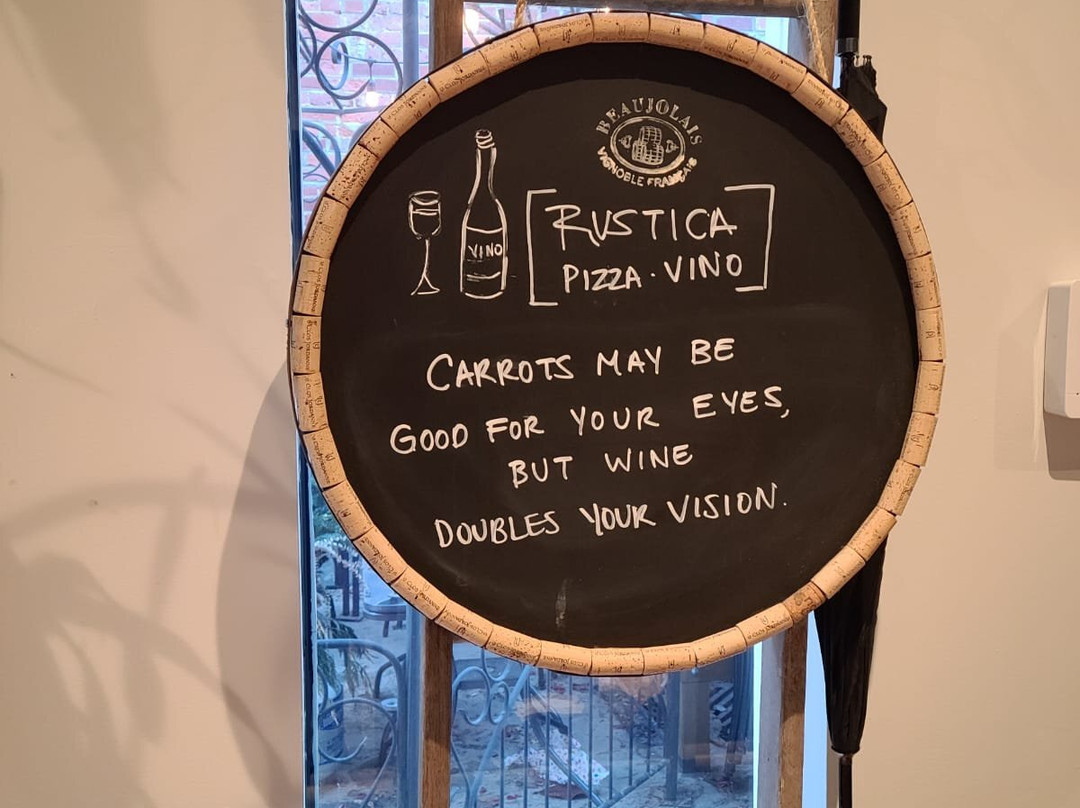 BEAUJOLAIS
VIGNOBLE FRANÇAIS
VINO
RUSTICA
PIZZA · VINO
CARROTS MAY BE
GOOD FOR YOUR EYES,
BUT WINE
DOUBLES YOUR VISION.